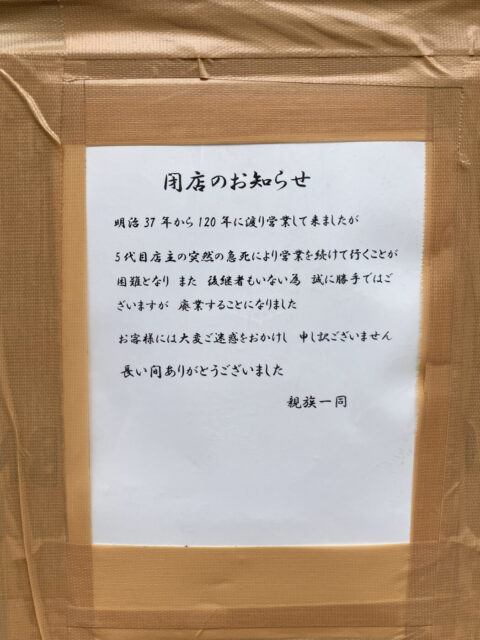 閉店のお知らせ
明治37年から120年に渡り営業して来ましたが
5代目店主の突然の急死により営業を続けて行くことが
困難となり また 後継者もいない為 誠に勝手ではご
ざいますが 廃業することになりました
お客様には大変ご迷惑をおかけし 申し訳ございません
長い間ありがとうございました
親族一同